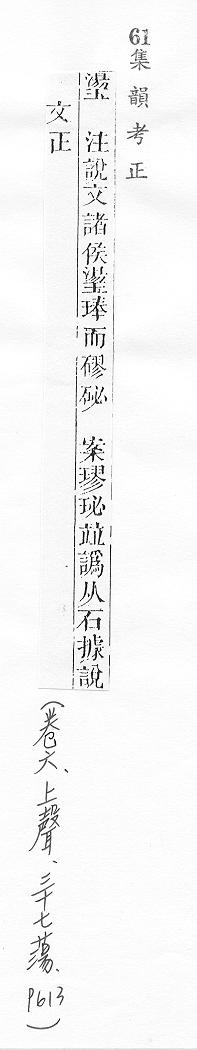 61集韻考正
璗 注說文諸侯璗琫而磟 案璆珌竝譌从石據說
文正
(卷六、上聲、三十七蕩、P613)